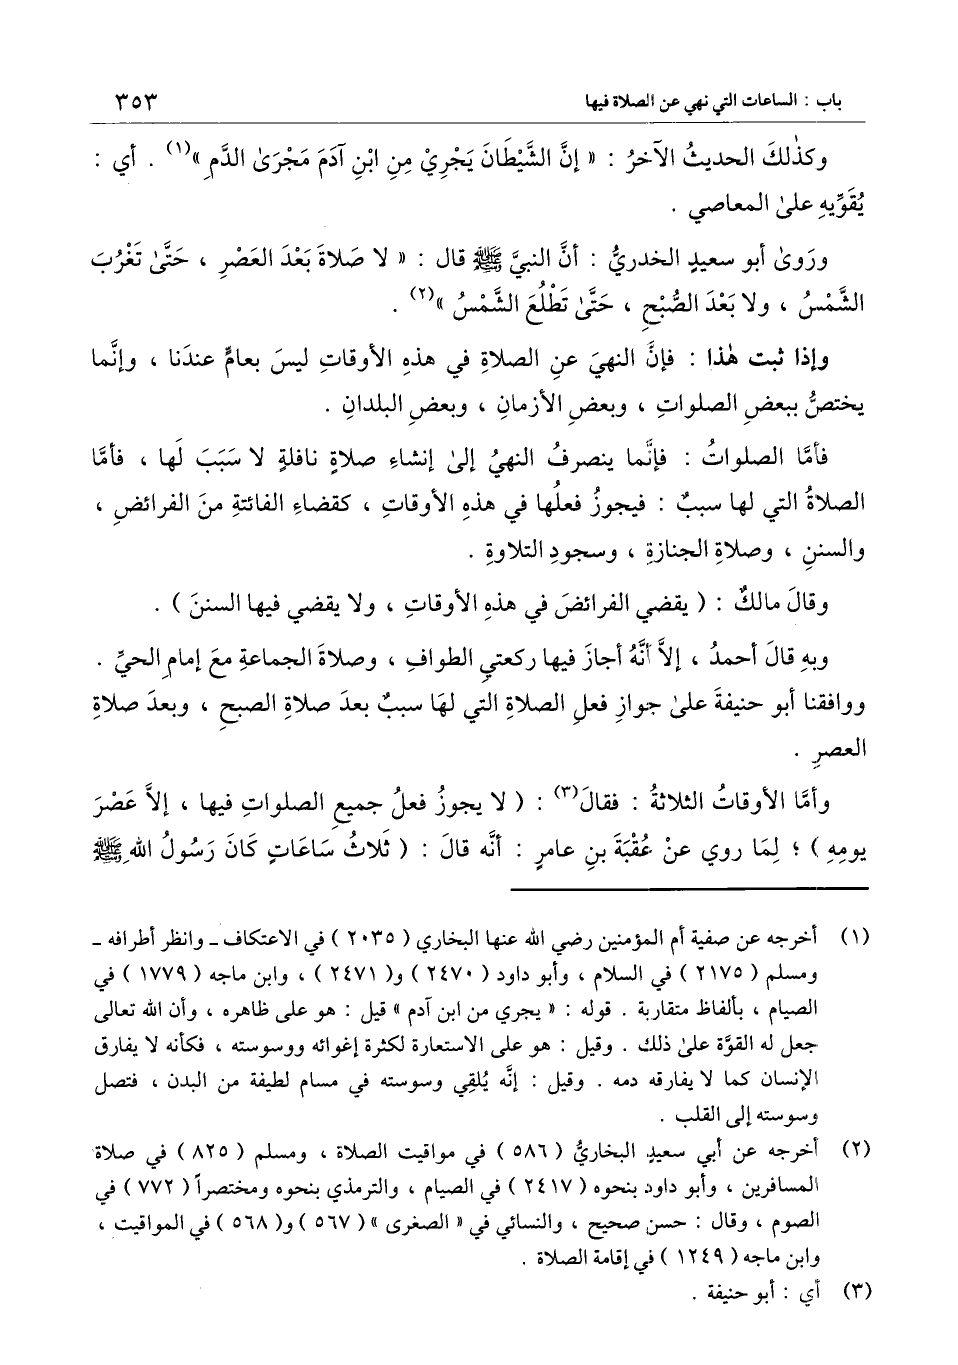 باب : الساعات التي نهي عن الصلاة فيها ٣٥٣
وكذٰلكَ الحديثُ الآخرُ : « إنَّ الشَّيْطَانَ يَجْرِيْ مِنِ ابْنِ آدَمَ مَجْرَىٰ الدَّمِ »(١) . أي :
يُقَوِّيهِ علىٰ المعاصي .
ورَوىٰ أبو سعيدٍ الخدريُّ : أنَّ النبيَّ ﷺ قال : « لا صَلاةَ بَعْدَ العَصْرِ ، حَتَّىٰ تَغْرُبَ
الشَّمْسُ ، ولا بَعْدَ الصُّبْحِ ، حَتَّىٰ تَطْلُعَ الشَّمْسُ »(٢) .
وإذا ثبت هٰذا : فإنَّ النهيَ عنِ الصلاةِ في هذهِ الأوقاتِ ليسَ بعامٍّ عندَنا ، وإنَّما
يختصُّ ببعضِ الصلواتِ ، وبعضِ الأزمانِ ، وبعضِ البلدانِ .
فأمَّا الصلواتُ : فإنَّما ينصرفُ النهيُ إلىٰ إنشاءِ صلاةٍ نافلةٍ لا سَبَبَ لَها ، فأمَّا
الصلاةُ التي لها سببٌ : فيجوزُ فعلُها في هذهِ الأوقاتِ ، كقضاءِ الفائتةِ منَ الفرائضِ ،
والسننِ ، وصلاةِ الجنازةِ ، وسجودِ التلاوةِ .
وقالَ مالكٌ : ( يقضي الفرائضَ في هذهِ الأوقاتِ ، ولا يقضي فيها السننَ ) .
وبهِ قالَ أحمدُ ، إلاَّ أنَّهُ أجازَ فيها ركعتيِ الطوافِ ، وصلاةَ الجماعةِ معَ إمامِ الحيِّ .
ووافقنا أبو حنيفةَ علىٰ جوازِ فعلِ الصلاةِ التي لهَا سببٌ بعدَ صلاةِ الصبحِ ، وبعدَ صلاةِ
العصرِ .
وأمَّا الأوقاتُ الثلاثةُ : فقالَ(٣) : ( لا يجوزُ فعلُ جميعِ الصلواتِ فيها ، إلاَّ عَصْرَ
يومِهِ ) ؛ لِمَا روي عنْ عُقْبَةَ بنِ عامرٍ : أنَّه قالَ : ( ثَلاثُ سَاعَاتٍ كَانَ رَسُولُ اللهِ ﷺ
(١) أخرجه عن صفية أم المؤمنين رضي الله عنها البخاري ( ٢٠٣٥ ) في الاعتكاف ـ وانظر أطرافه ـ
ومسلم ( ٢١٧٥ ) في السلام ، وأبو داود ( ٢٤٧٠ ) و( ٢٤٧١ ) ، وابن ماجه ( ١٧٧٩ ) في
الصيام ، بألفاظ متقاربة . قوله : « يجري من ابن آدم » قيل : هو على ظاهره ، وأن الله تعالى
جعل له القوَّة علىٰ ذلك . وقيل : هو على الاستعارة لكثرة إغوائه ووسوسته ، فكأنه لا يفارق
الإنسان كما لا يفارقه دمه . وقيل : إنَّه يُلقِي وسوسته في مسام لطيفة من البدن ، فتصل
وسوسته إلى القلب .
(٢) أخرجه عن أبي سعيدٍ البخاريُّ ( ٥٨٦ ) في مواقيت الصلاة ، ومسلم ( ٨٢٥ ) في صلاة
المسافرين ، وأبو داود بنحوه ( ٢٤١٧ ) في الصيام ، والترمذي بنحوه ومختصراً ( ٧٧٢ ) في
الصوم ، وقال : حسن صحيح ، والنسائي في « الصغرى » ( ٥٦٧ ) و( ٥٦٨ ) في المواقيت ،
وابن ماجه ( ١٢٤٩ ) في إقامة الصلاة .
(٣) أي : أبو حنيفة .